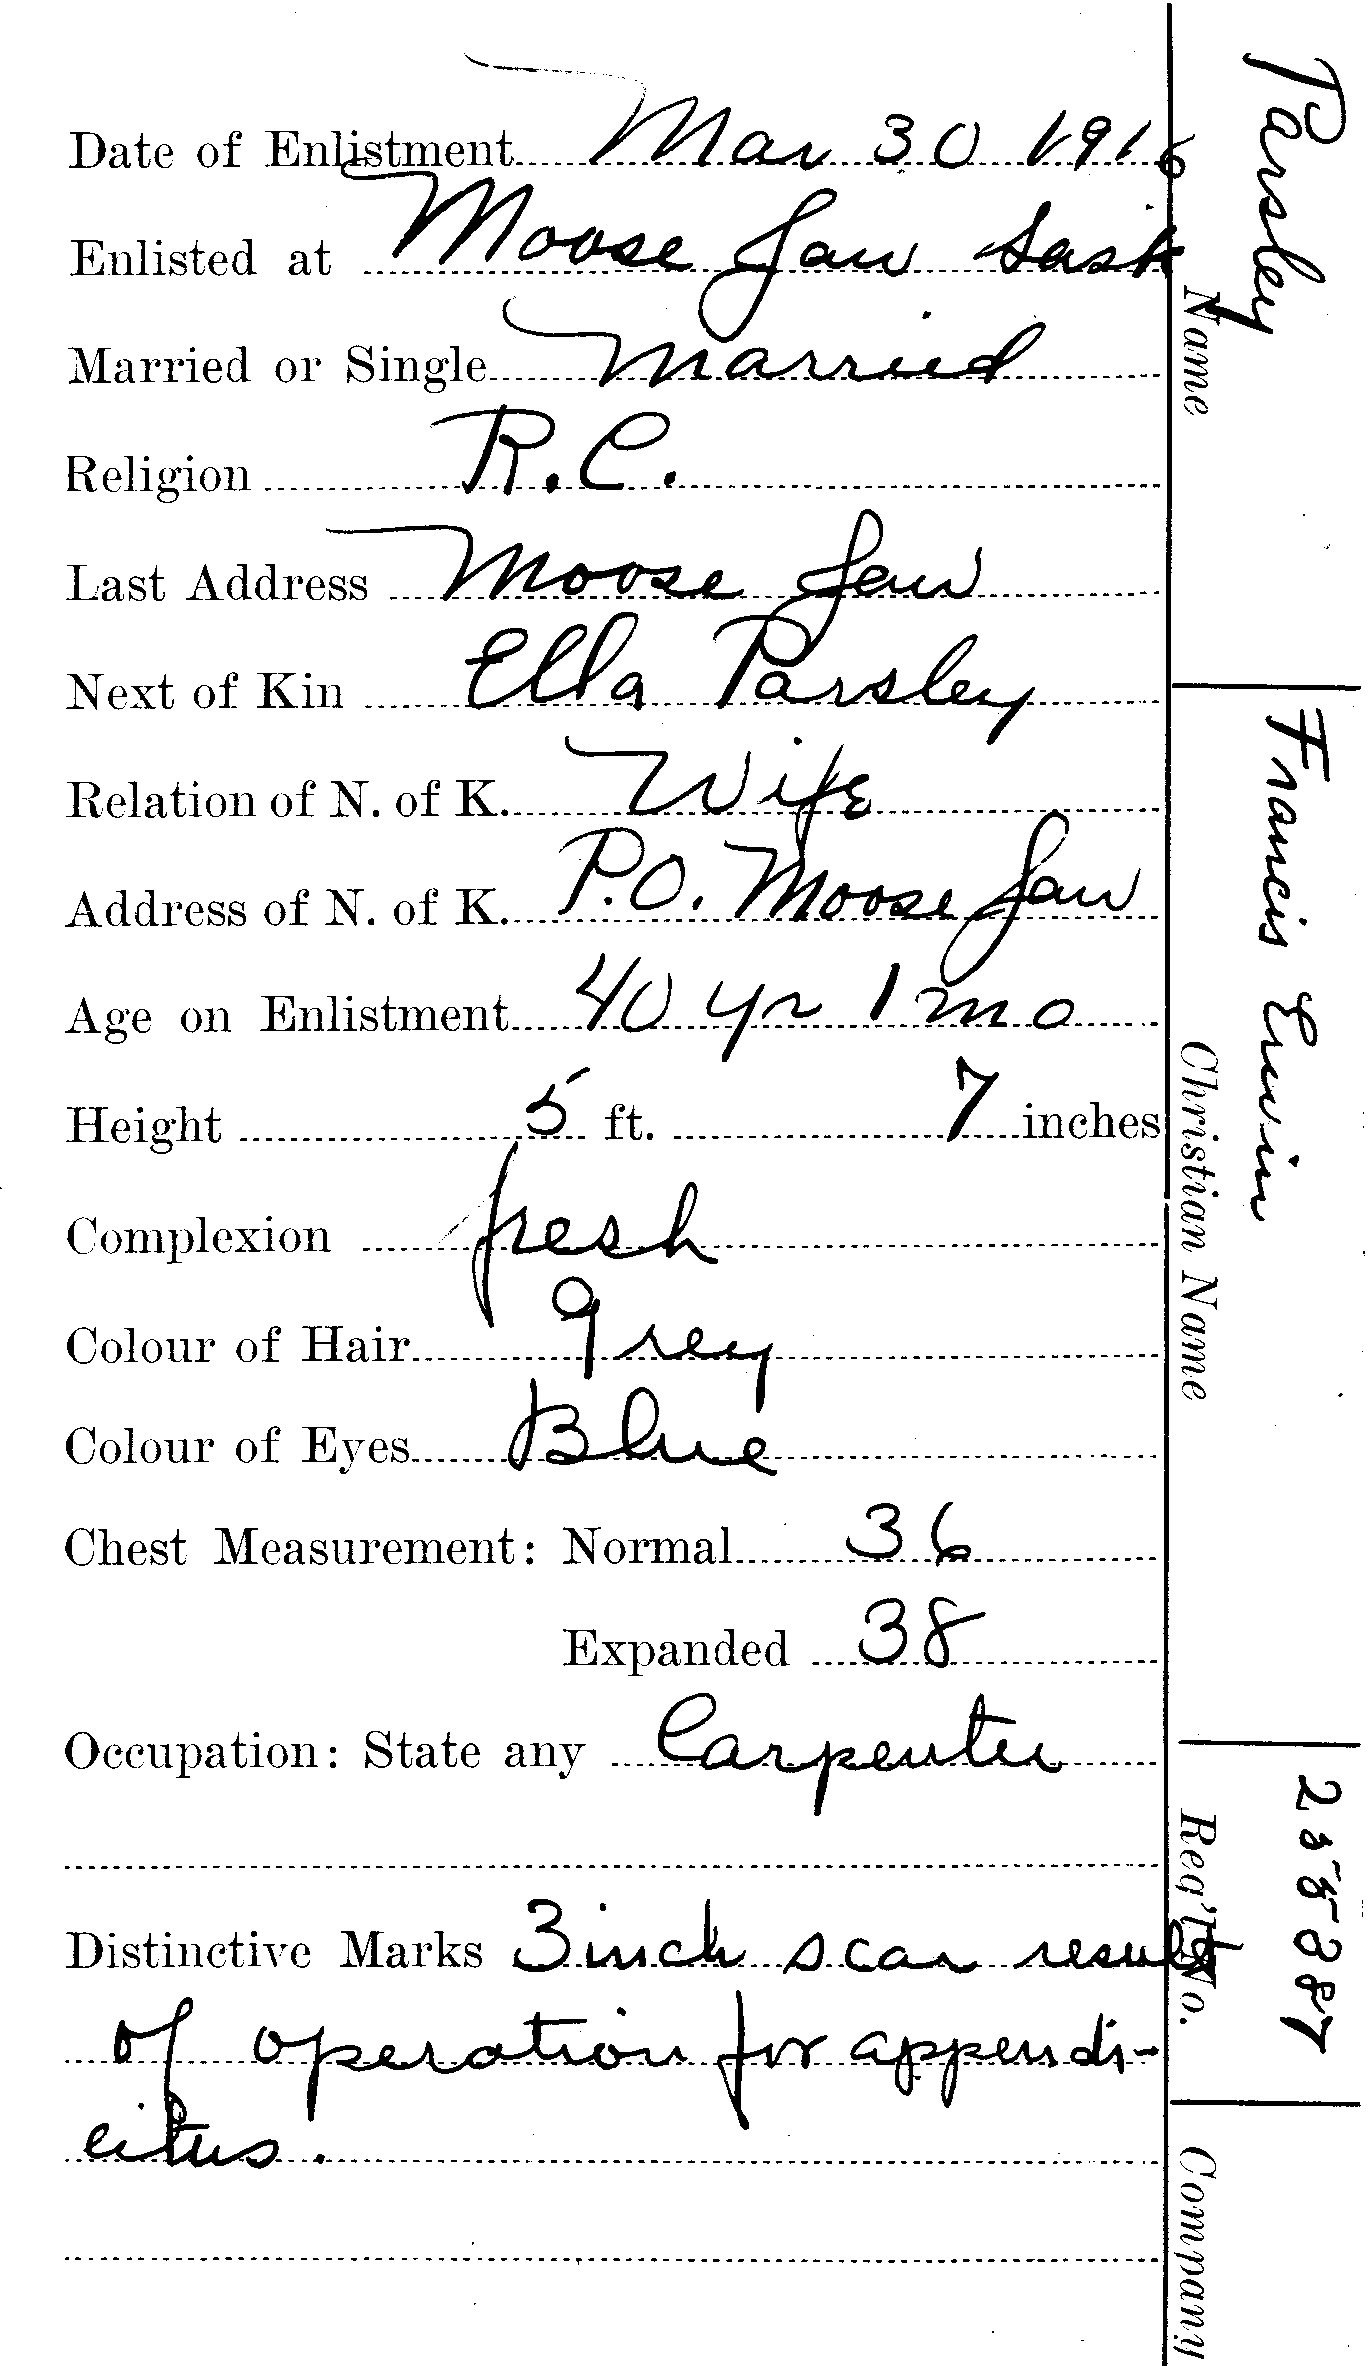 Date of Enlistment Mar 30 1916
Enlisted at Moose Jaw Sask
Married or Single Married
Religion R.C.
Last Address Moose Jaw
Next of Kin Ella Parsley
Relation of N. of K. Wife
Address of N. of K. P.O. Moose Jaw
Age on Enlistment 40 yr 1 mo
Height 5 ft. 7 inches
Complexion fresh
Colour of Hair grey
Colour of Eyes Blue
Chest Measurement: Normal 36
Expanded 38
Occupation: State any Carpenter
Distinctive Marks 3 inch scar result
of operation for appendi-
citus.
Parsley
Name
Francis Erwin
Christian Name
Reg'l No.
Company